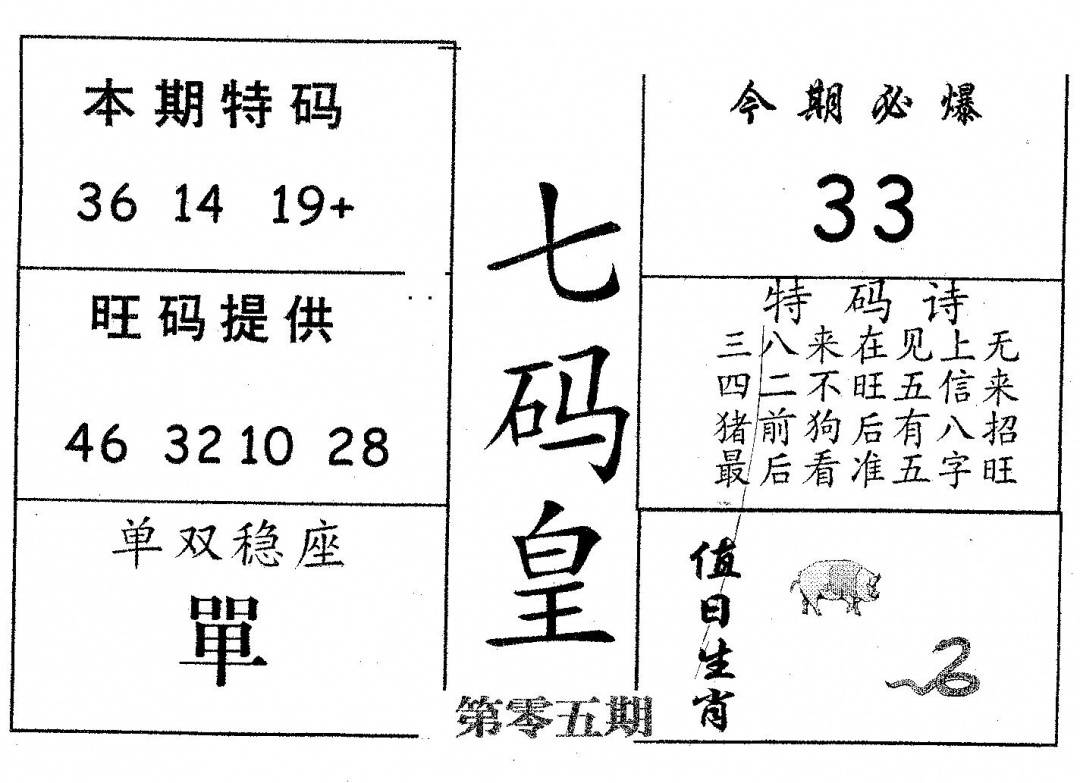 本期特码
36 14 19+
旺码提供
46 32 10 28
单双稳座
單
七码皇
第零五期
今期必爆
33
特码诗
三八来在见上无
四二不旺五信来
猪前狗后有八招
最后看准五字旺
值日生肖